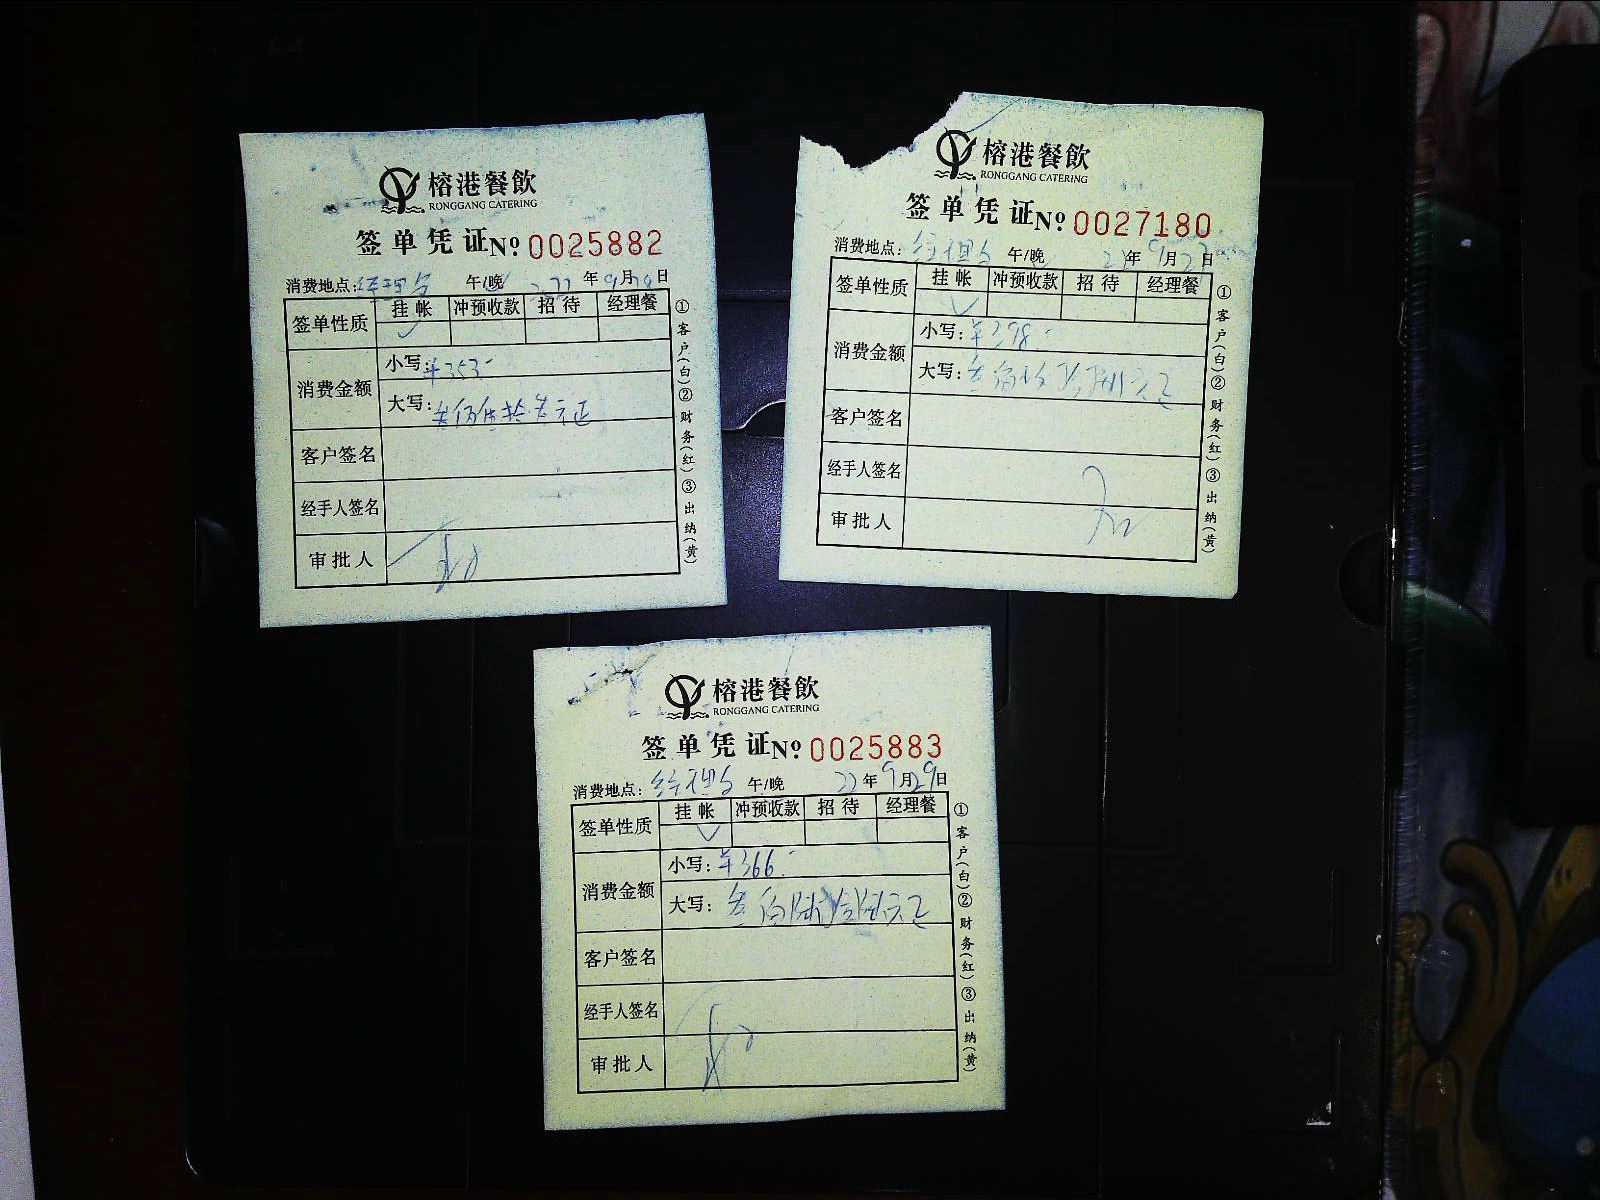 榕港餐飲
RONGGANG CATERING
签单凭证№ 0025882
消费地点: 经理台 午/晚 22年9月28日
签单性质 挂帐 冲预收款 招待 经理餐
消费金额
小写: ¥353-
大写: 叁佰伍拾叁元正
客户签名
经手人签名
审批人
①客户(白)②财务(红)③出纳(黄)
榕港餐飲
RONGGANG CATERING
签单凭证№ 0027180
消费地点: 午/晚 年9月2日
签单性质 挂帐 冲预收款 招待 经理餐
消费金额
小写: ¥298-
大写:
客户签名
经手人签名
审批人
①客户(白)②财务(红)③出纳(黄)
榕港餐飲
RONGGANG CATERING
签单凭证№ 0025883
消费地点: 经理台 午/晚 22年9月29日
签单性质 挂帐 冲预收款 招待 经理餐
消费金额
小写: ¥366-
大写: 叁佰陆拾陆元正
客户签名
经手人签名
审批人
①客户(白)②财务(红)③出纳(黄)